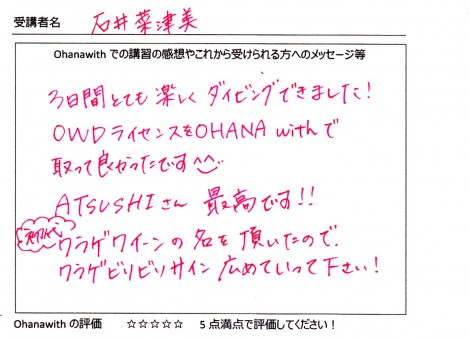 受講者名 石井菜津美
Ohanawith での講習の感想やこれから受けられる方へのメッセージ等
3日間とても楽しくダイビングできました!
OWDライセンスをOHANA withで
取って良かったです^^
ATSUSHIさん 最高です!!
初代
クラゲクイーンの名を頂いたので、
クラゲビリビリサイン広めていって下さい!
Ohanawith の評価 ☆☆☆☆☆ 5点満点で評価してください!